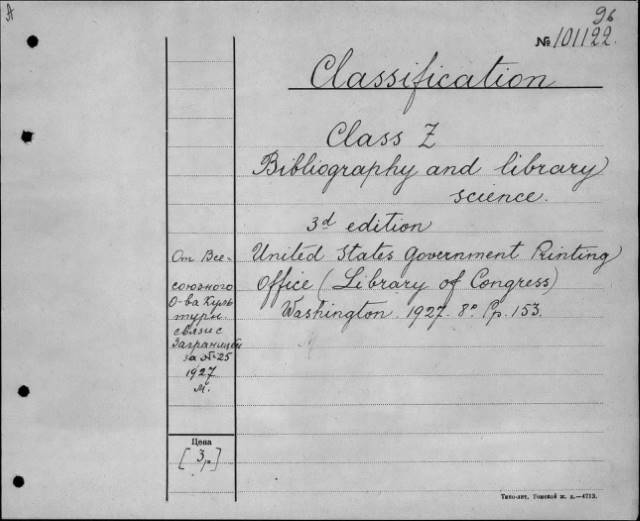 А
96
№ 101122.
Classification
Class Z
Bibliography and library
science.
3d edition
United States Government Printing
Office (Library of Congress)
Washington. 1927. 8° Pp. 153.
От Все-
союзного
О-ва Куль
турн.
связи с
Заграницей
за № 25
1927
м.
Цена
[3р]
Типо-лит. Томской ж. д.—4713.